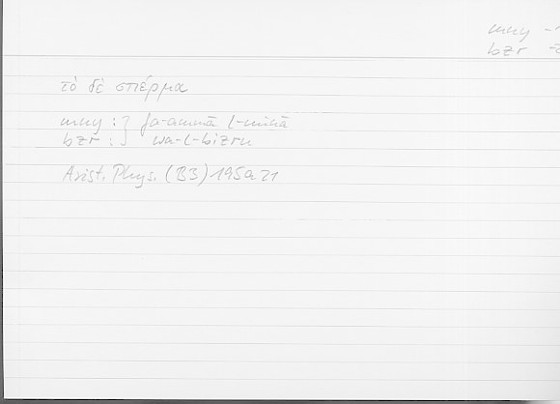 mny
bzr
τὸ δὲ σπέρμα
mny : } fa-ammā l-minā
bzr : } wa-l-bizru
Arist. Phys. (B3) 195a21